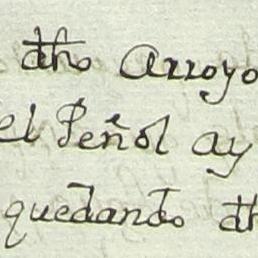 dho Arroyo
el Peñol ay
quedando dh